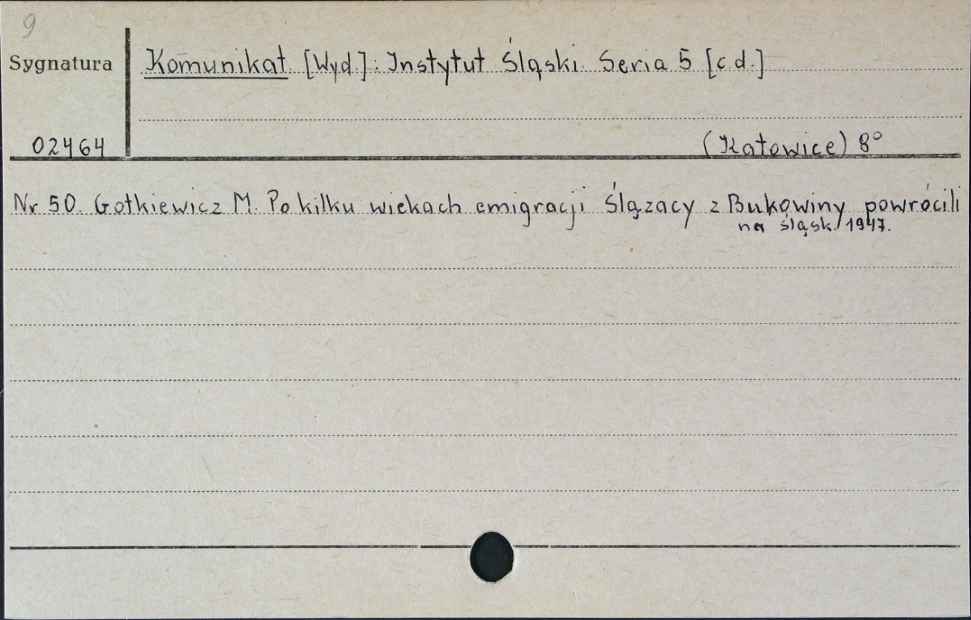 9
Sygnatura
Komunikat. [Wyd]: Instytut Śląski. Seria 5 [c d.]
02464
(Katowice) 8°
Nr 50. Gotkiewicz M. Po kilku wiekach emigracji Ślązacy z Bukowiny powrócili
na śląsk. 1947.